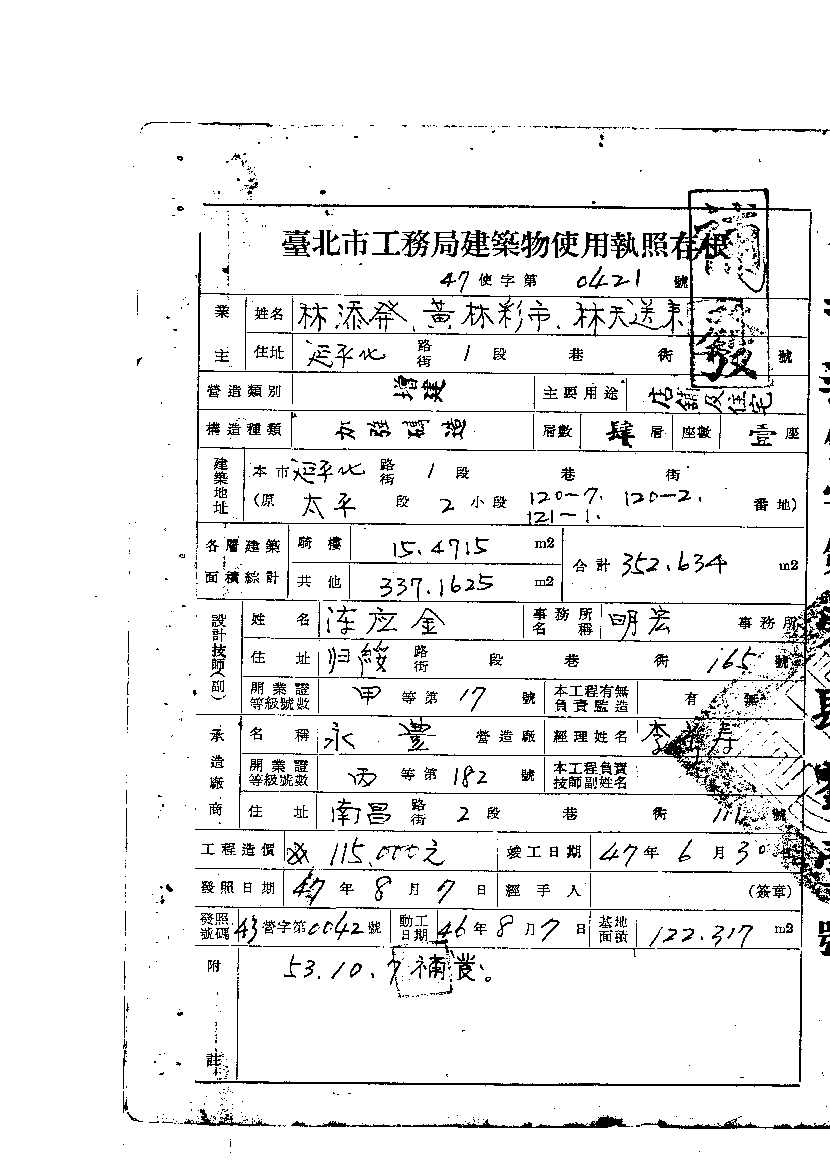 臺北市工務局建築物使用執照存根
47 使字第 0421 號
補發
業主 姓名 林添發、黃林彩市、林天送
住址 延平北 路街 1 段 巷 街 號
營造類別 增建 主要用途 店舖及住宅
構造種類 加強磚造 層數 肆 層 座數 壹 座
建築地址 本市 延平北 路街 1 段 巷 街
(原 太平 段 2 小段 120-7. 120-2. 121-1. 番地)
各層建築面積綜計 騎樓 15.4715 m2 合計 352.634 m2
其他 337.1625 m2
設計技師(副) 姓名 应金 事務所名稱 明宏 事務所
住址 归綏 路街 段 巷 街 165 號
開業證等級號數 甲 等第 17 號 本工程有無負責監造 有 無
承造廠商 名稱 永豐 營造廠 經理姓名 李 寿
開業證等級號數 丙 等第 182 號 本工程負責技師副姓名
住址 南昌 路街 2 段 巷 街 111 號
工程造價 115,000元 竣工日期 47 年 6 月 30
發照日期 47 年 8 月 7 日 經手人 (簽章)
發照號碼 43 營字第 0042 號 動工日期 46 年 8 月 7 日 基地面積 122.317 m2
附註 53.10.7 補發。
號